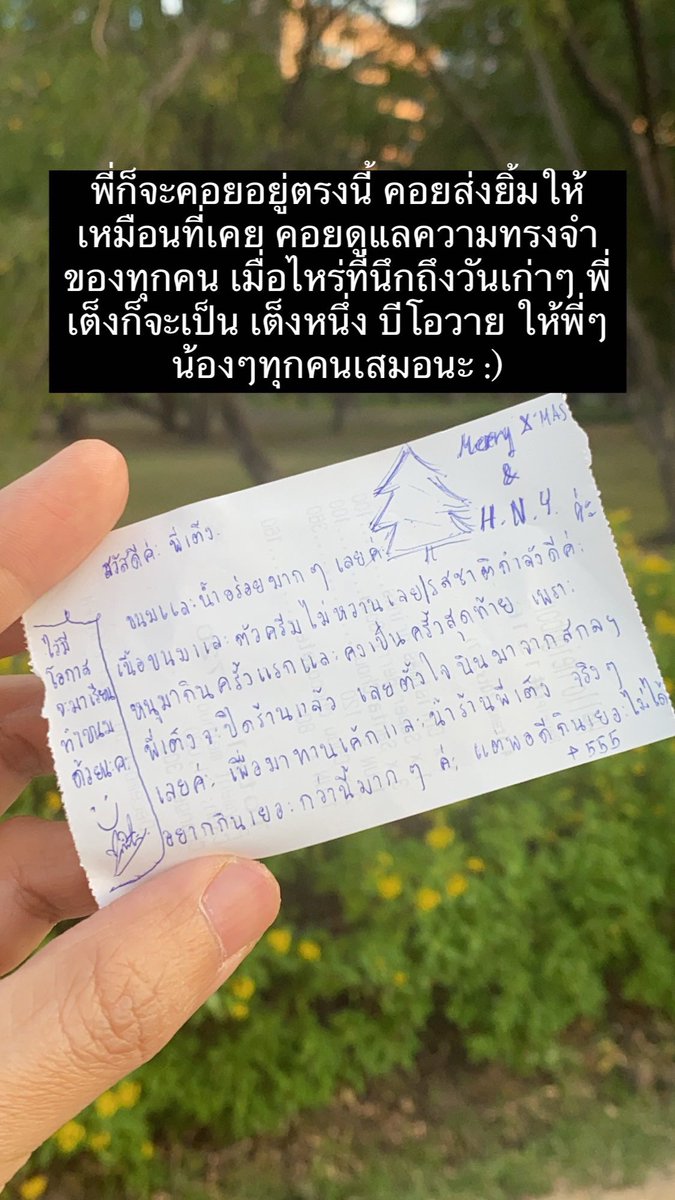 พี่ก็จะคอยอยู่ตรงนี้ คอยส่งยิ้มให้
เหมือนที่เคย คอยดูแลความทรงจำ
ของทุกคน เมื่อไหร่ที่นึกถึงวันเก่าๆ พี่
เต็งก็จะเป็น เต็งหนึ่ง บีโอวาย ให้พี่ๆ
น้องๆทุกคนเสมอนะ :)
Merry X'MAS
&
H.N.Y. ค่ะ
สวัสดีค่ะ พี่เต็ง.
ขนมและน้ำอร่อยมากๆ เลยค่ะ
เนื้อขนมและตัวครีมไม่หวานเลย/รสชาติกำลังดีค่ะ
หนูมากินครั้งแรกและคงเป็นครั้งสุดท้าย เพราะ
พี่เต็งจะปิดร้านแล้ว เลยตั้งใจบินมาจาก
เลยค่ะ เพื่อมาทานเค้กและน้ำร้านพี่เต็ง จริงๆ
อยากกินเยอะกว่านี้มากๆ ค่ะ แต่พอดีกินเยอะไม่ได้
+555
ไว้มี
โอกาส
จะมาเรียน
ทำขนม
ด้วยนะคะ